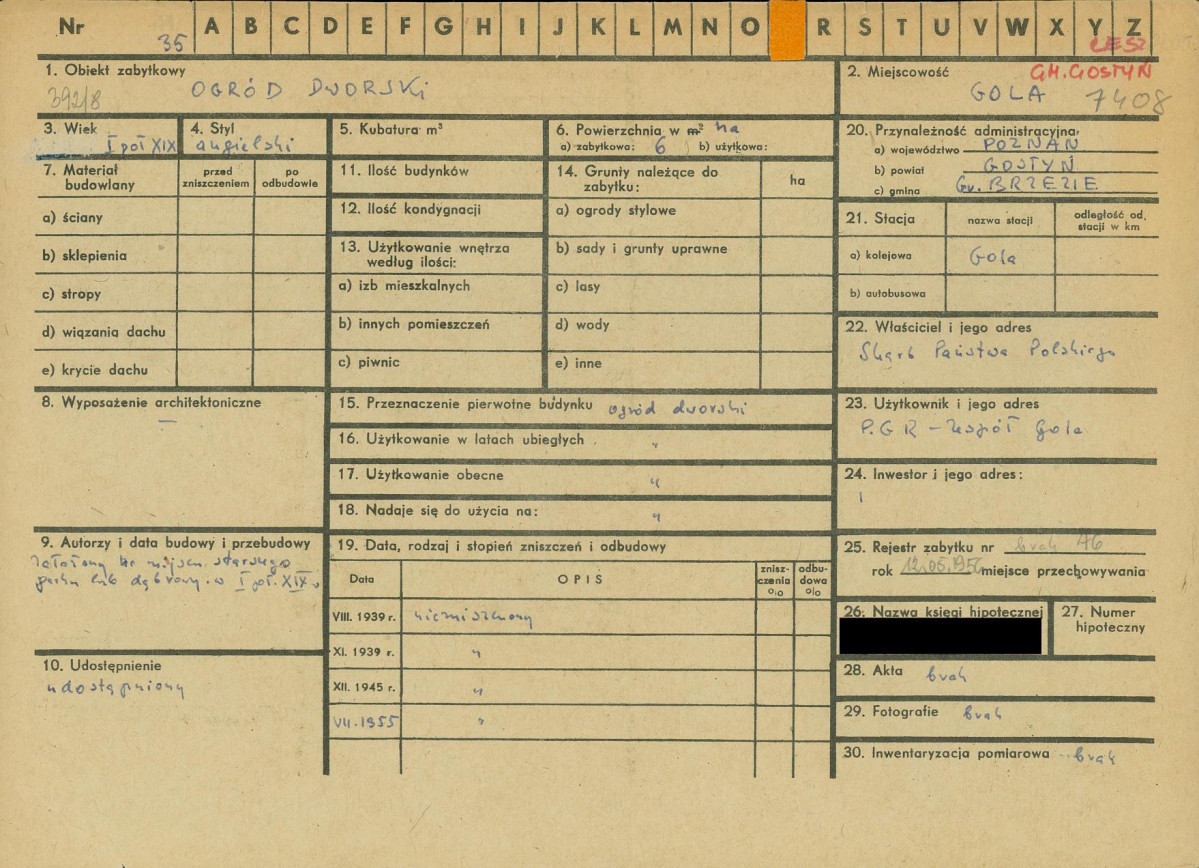 Nr 35 A B C D E F G H I J K L M N O R S T U V W X Y Z
LESZ
1. Obiekt zabytkowy
392/8 OGRÓD DWORSKI
2. Miejscowość GM. GOSTYŃ
GOLA 7408
3. Wiek
I poł XIX
4. Styl
angielski
5. Kubatura m³
6. Powierzchnia w m² ha
a) zabytkowa: 6 b) użytkowa:
7. Materiał budowlany
przed zniszczeniem
po odbudowie
a) ściany
b) sklepienia
c) stropy
d) wiązania dachu
e) krycie dachu
11. Ilość budynków
12. Ilość kondygnacji
13. Użytkowanie wnętrza
według ilości:
a) izb mieszkalnych
b) innych pomieszczeń
c) piwnic
14. Grunty należące do
zabytku:
ha
a) ogrody stylowe
b) sady i grunty uprawne
c) lasy
d) wody
e) inne
20. Przynależność administracyjna,
a) województwo POZNAŃ
b) powiat GOSTYŃ
c) gmina Gr. BRZEZIE
21. Stacja
nazwa stacji
odległość od stacji w km
a) kolejowa Gola
b) autobusowa
22. Właściciel i jego adres
Skarb Państwa Polskiego
8. Wyposażenie architektoniczne
—
15. Przeznaczenie pierwotne budynku ogród dworski
16. Użytkowanie w latach ubiegłych "
17. Użytkowanie obecne "
18. Nadaje się do użycia na: "
23. Użytkownik i jego adres
P.G.R – Zespół Gola
24. Inwestor i jego adres:
9. Autorzy i data budowy i przebudowy
Założony na miejscu starego
parku lub dąbrowy w I poł. XIX w
10. Udostępnienie
udostępniony
19. Data, rodzaj i stopień zniszczeń i odbudowy
Data
OPIS
znisz-
czenia
%
odbu-
dowa
%
VIII. 1939 r. niezniszczony
XI. 1939 r. "
XII. 1945 r. "
VII. 1955 "
25. Rejestr zabytku nr brak A6
rok 12.05.1956 miejsce przechowywania
26. Nazwa księgi hipotecznej
27. Numer
hipoteczny
28. Akta brak
29. Fotografie brak
30. Inwentaryzacja pomiarowa brak